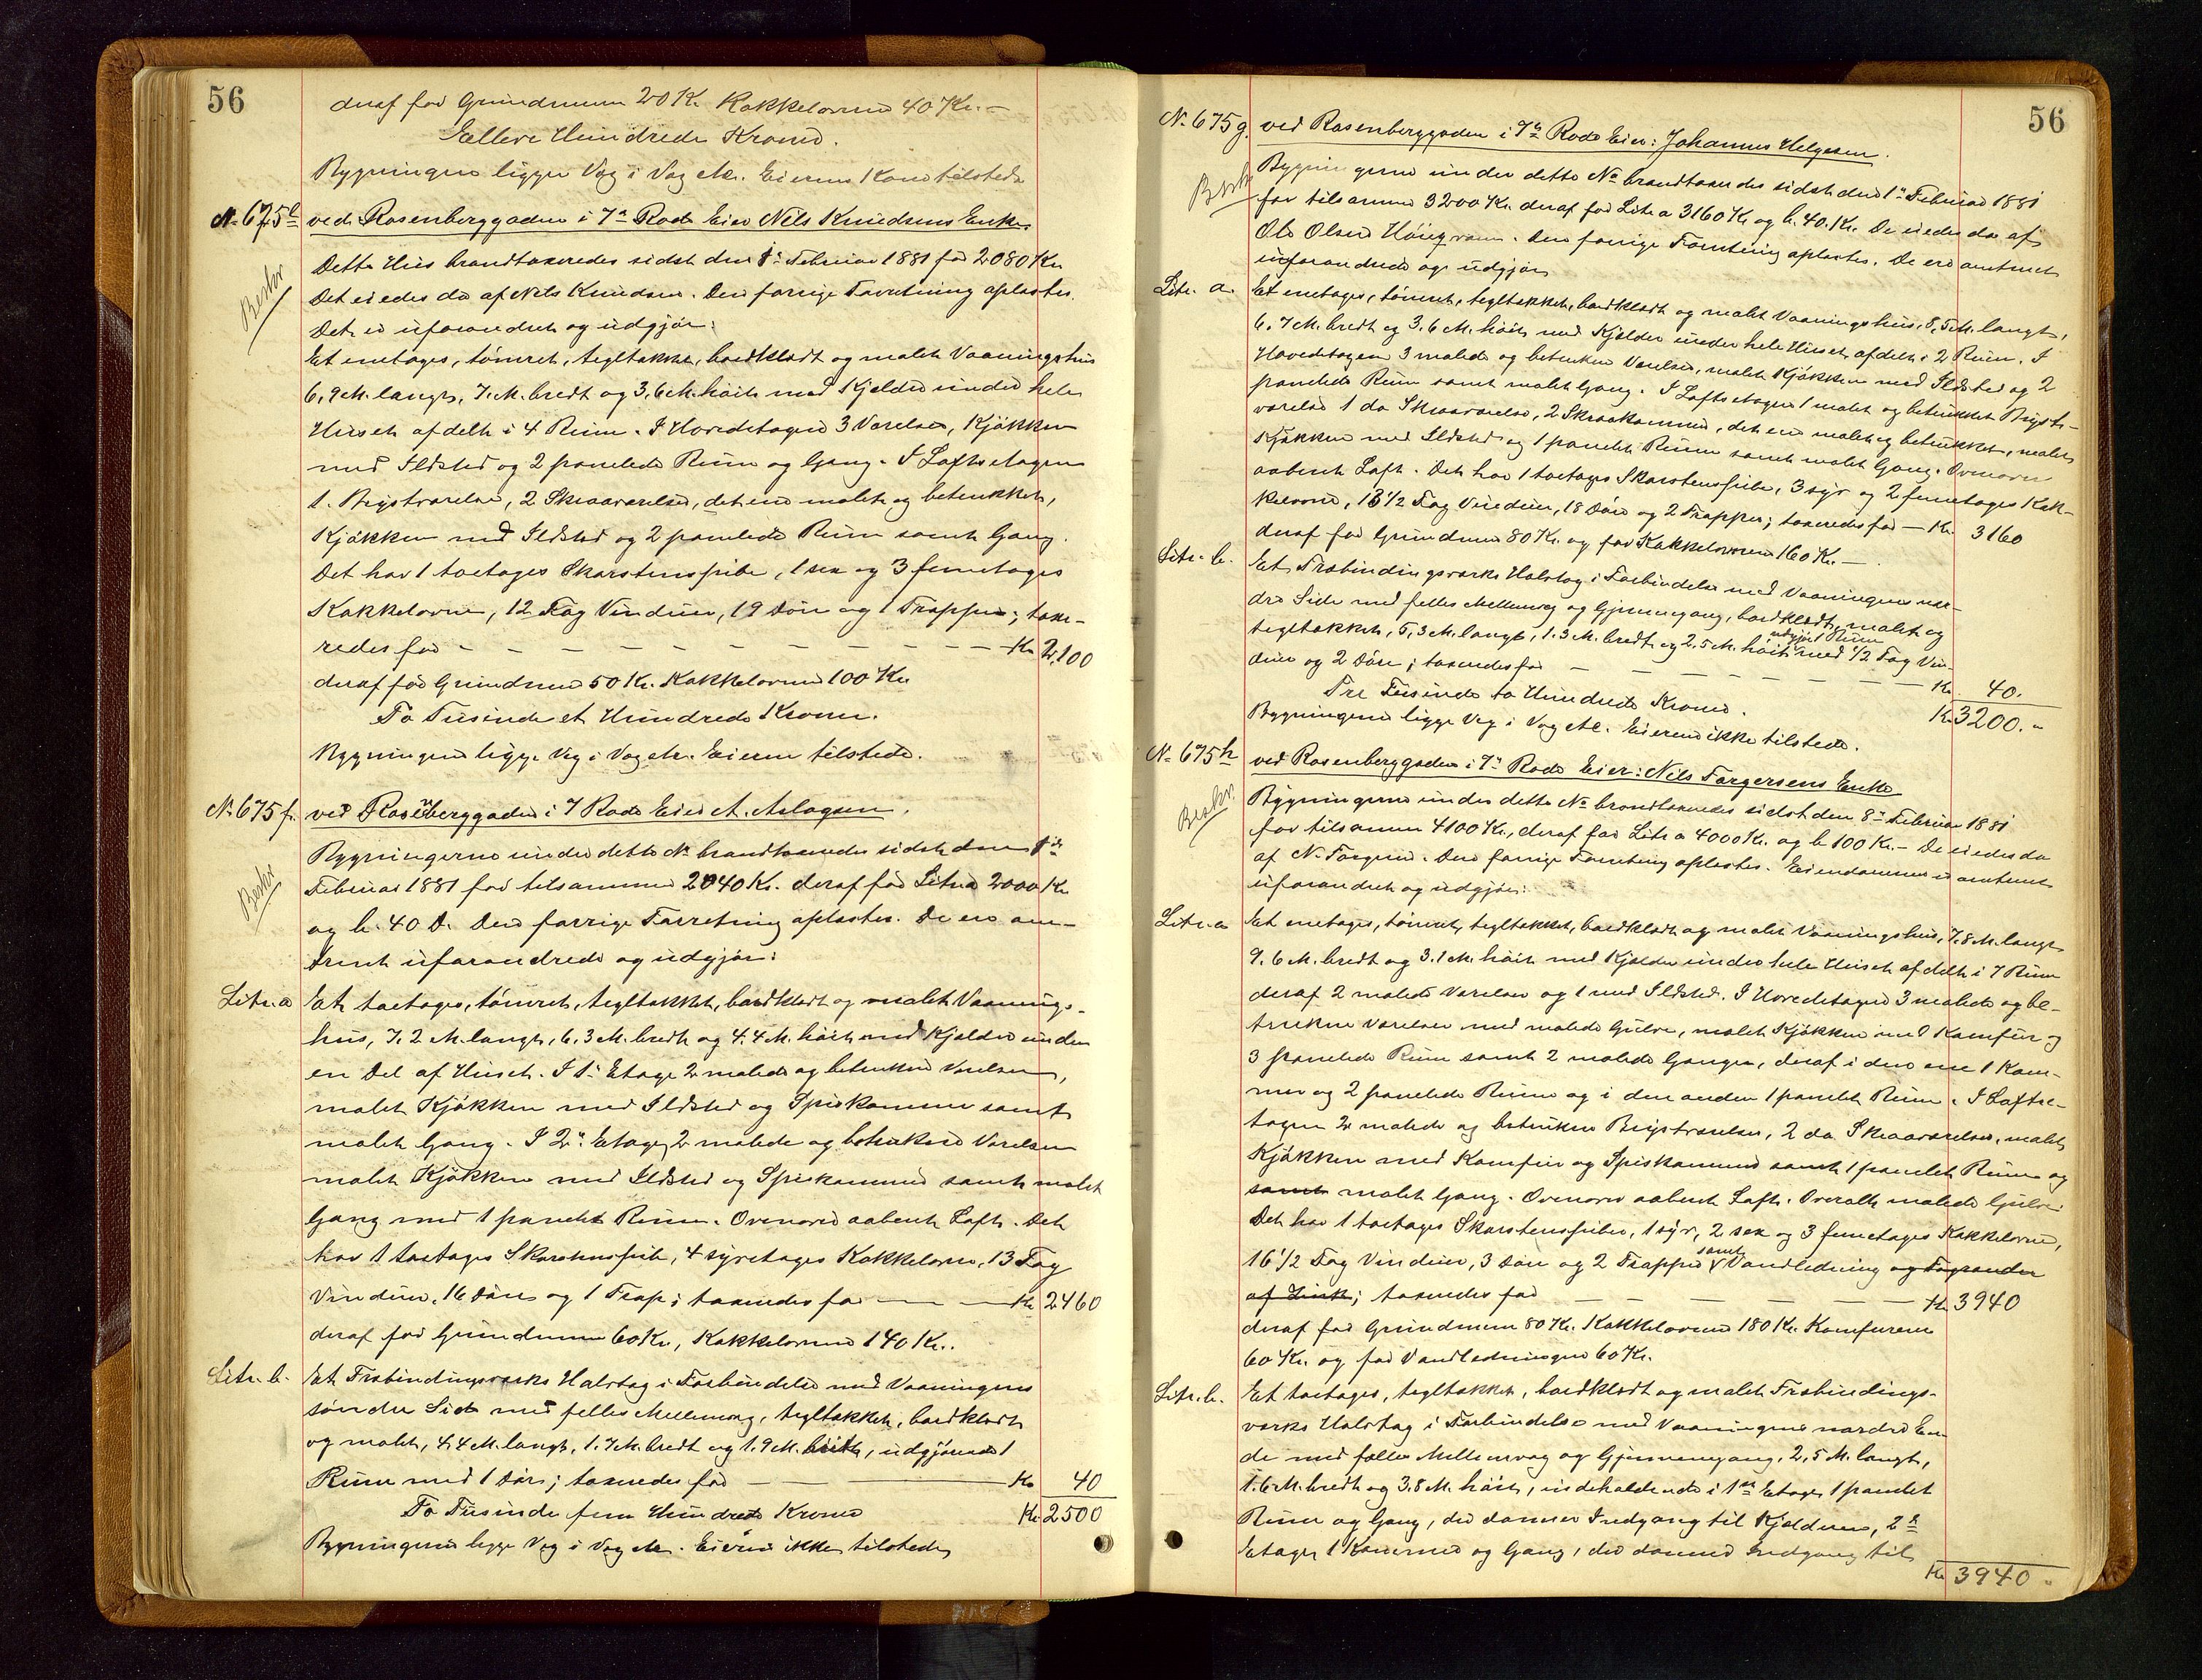 56
deraf for Grundmuren 20 Kr. Kakkelovnene 40 Kr. —
Elleve Hundrede Kroner.
Bygningen ligger Væg i Væg etc. Eierens Kone tilstede
No. 675 e ved Rosenberggaden i 7de Rode Eier Niels Knudsens Enke.
Beskr
Dette Hus brandtaxeredes sidst den 8de Februar 1881 for 2080 Kr.
Det eiedes da af Nils Knudsen. Den forrige Forretning oplæstes.
Det er uforandret og udgjør:
Et enetages, tømret, tegltækket, bordklædt og malet Vaaningshus
6,9 M. langt, 7. M. bredt og 3,6 M. høit med Kjelder under hele
Huset afdelt i 4 Rum. I Hovedetagen 3 Værelser, Kjøkken
med Ildsted og 2 panelede Rum og Gang. I Loftsetagen
1. Brystværelse, 2 Skraaværelser, det ene malet og betrukket,
Kjøkken med Ildsted og 2 panelede Rum samt Gang.
Det har 1 toetages Skorstenspibe, 1 sex og 3 femetages
Kakkelovne, 12 Fag Vinduer, 19 Døre og 1 Trappe; taxe-
redes for - - - - - - - - - Kr 2,100
deraf for Grundmur 50 Kr. Kakkelovnene 100 Kr
To Tusinde et Hundrede Kroner.
Bygningen ligger Væg i Væg etc. Eieren tilstede.
No. 675 f. ved Rosenberggaden i 7 Rode Eier A. Aslagsen.
Beskr
Bygningerne under dette No brandtaxeredes sidst den 8de
Februar 1881 for tilsammen 2040 Kr. deraf for Litra a 2000 Kr
og b. 40 D. Den forrige Forretning oplæstes. De ere om-
trent uforandrede og udgjør:
Litr. a Et toetages, tømret, tegltækket, bordklædt og malet Vaanings-
hus, 7.2 M. langt, 6.3 M. bredt og 4.4 M. høit med Kjelder under
en Del af Huset. I 1ste Etage 2 malede og betrukne Værelser,
malet Kjøkken med Ildsted og Spiskammer samt
malet Gang. I 2den Etage 2 malede og betrukne Værelser
malet Kjøkken med Ildsted og Spiskammer samt malet
Gang med 1 panelet Rum. Ovenover aabent Loft. Det
har 1 toetages Skorstenspibe, 4 syvetages Kakkelovne, 13 Fag
Vinduer, 16 Døre og 1 Trap; taxeredes for — — Kr 2460
deraf for Grundmuren 60 Kr, Kakkelovnene 140 Kr..
Litr. b. Et Træbindingsværks Halvtag i Forbindelse med Vaaningens
søndre Side med fælles Mellemvæg, tegltækket, bordklædt
og malet, 4,4 M. langt, 1.7 M. bredt og 1.9 M. høit, udgjørende 1
Rum med 1 Dør; taxeredes for — Kr 40
To Tusinde fem Hundrede Kroner Kr 2500
Bygningen ligger Væg i Væg etc. Eieren ikke tilstede,
56
No. 675 g. ved Rosenberggaden i 7de Rode Eier: Johannes Helgesen.
Beskr
Bygningerne under dette No brandtaxeredes sidst den 1ste Februar 1881
for tilsammen 3200 Kr. deraf for Litr a 3160 Kr og b. 40. Kr. De eiedes da af
Ole Olsen. Den forrige Forretning oplæstes. De ere omtrent
uforandrede og udgjør
Litr. a. Et enetages, tømret, tegltækket, bordklædt og malet Vaaningshus, 8,5 M. langt,
6,7 M. bredt og 3.6 M. høit, med Kjelder under hele Huset, afdelt i 2 Rum. I
Hovedetagen 3 malede og betrukne Værelser, malet Kjøkken med Ildsted og 2
panelede Rum samt malet Gang. I Loftsetagen 1 malet og betrukket Bryst-
værelse 1 do Skraaværelse, 2 Skraakammer, det ene malet og betrukket, malet
Kjøkken med Ildsted og 1 panelet Rum samt malet Gang. Ovenover
aabent Loft. Det har 1 toetages Skorstenspibe, 3 syv og 2 femetages Kak-
kelovne, 18 1/2 Fag Vinduer, 18 Døre og 2 Trapper; taxeredes for — Kr. 3160
deraf for Grundmur 80 Kr. og for Kakkelovnene 160 Kr. — .
Litr. b. Et Træbindingsværks Halvtag i Forbindelse med Vaaningens nor-
dre Side med fælles Mellemvæg og Gjennemgang, bordklædt, malet og
tegltækket, 5,3 M. langt, 1.3 M. bredt og 2.5 M. høit, udgjør 1 Rum med 1/2 Fag Vin-
duer og 2 Døre; taxeredes for — — — Kr. 40.
Tre Tusinde to Hundrede Kroner. Kr 3200."
Bygningen ligger Væg i Væg etc. Eieren ikke tilstede.
No. 675 h ved Rosenberggaden i 7de Rode Eier: Nils Torgersens Enke
Beskr.
Bygningerne under dette No brandtaxeredes sidst den 8de Februar 1881
for tilsammen 4100 Kr., deraf for Litr a 4000 Kr. og b 100 Kr. — De eiedes da
af N. Torgersen. Den forrige Forretning oplæstes. Eiendommen er omtrent
uforandret og udgjør:
Litr. a Et enetages, tømret, tegltækket, bordklædt og malet Vaaningshus, 7.8 M. langt
9.6 M. bredt og 3.1 M. høit med Kjelder under hele Huset afdelt i 7 Rum
deraf 2 malede Værelser og 1 med Ildsted. I Hovedetagen 3 malede og be-
trukne Værelser med malede Gulve, malet Kjøkken med Komfur og
3 panelede Rum samt 2 malede Gange, deraf i den ene 1 Kam-
mer og 2 panelede Rum og i den anden 1 panelet Rum. I Loftse-
tagen 2 malede og betrukne Brystværelser, 2 do Skraaværelser, malet
Kjøkken med Komfur og Spiskammer samt 1 panelet Rum og
samt malet Gang. Ovenover aabent Loft. Overalt malede Gulve
Det har 1 toetages Skorstenspibe, 1 syv, 2 sex og 3 femetages Kakkelovne,
16 1/2 Fag Vinduer, 3 Døre og 2 Trapper samt Vandledning og Tagrender
af Zink; taxeredes for — — — Kr 3940
deraf for Grundmuren 80 Kr. Kakkelovnene 180 Kr. Komfurene
60 Kr. og for Vandledningen 60 Kr.
Litr. b. Et toetages, tegltækket, bordklædt og malet Træbindings-
værks Halvtag i Forbindelse med Vaaningens nordre En-
de med fælles Mellemvæg og Gjennemgang, 2,5 M. langt,
1.6 M. bredt og 3.8 M. høit, indeholdende i 1ste Etage 1 panelet
Rum og Gang, der danner Indgang til Kjelderen, 2den
Etage 1 Kammer og Gang, der danner Indgang til
Kr 3940 "